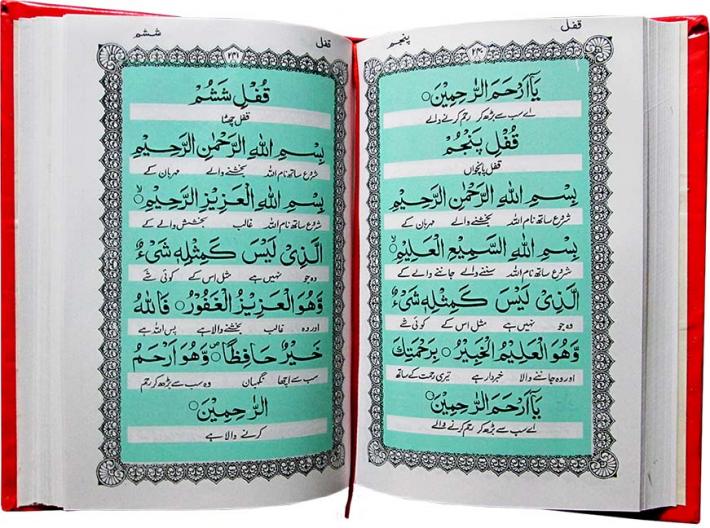 قفل
پنجم
۲۴۰
يَآ اَرْحَمَ الرّٰحِمِيْنَ○
اے سب سے بڑھ کر رحم کرنے والے
قُفْلِ پَنْجُمْ
قفل پانچواں
بِسْمِ اللهِ الرَّحْمٰنِ الرَّحِيْمِ
شروع ساتھ نام اللہ بخشنے والے مہربان کے
بِسْمِ اللهِ السَّمِيْعِ الْعَلِيْمِ ۙ
شروع ساتھ نام اللہ سننے والے جاننے والے کے
الَّذِىْ لَيْسَ كَمِثْلِهٖ شَىْءٌ
وہ جو نہیں ہے مثل اس کے کوئی شے
وَّهُوَ الْعَلِيْمُ الْخَبِيْرُ○ بِرَحْمَتِكَ
اور وہ جاننے والا خبردار ہے تیری رحمت کے ساتھ
يَآ اَرْحَمَ الرّٰحِمِيْنَ○
اے سب سے بڑھ کر رحم کرنے والے
قفل
ششم
۲۴۱
قُفْلِ شَشُمْ
قفل چھٹا
بِسْمِ اللهِ الرَّحْمٰنِ الرَّحِيْمِ
شروع ساتھ نام اللہ بخشنے والے مہربان کے
بِسْمِ اللهِ الْعَزِيْزِ الرَّحِيْمِ ۙ
شروع ساتھ نام اللہ غالب بخشش والے کے
الَّذِىْ لَيْسَ كَمِثْلِهٖ شَىْءٌ
وہ جو نہیں ہے مثل اس کے کوئی شے
وَّهُوَ الْعَزِيْزُ الْغَفُوْرُ○ فَاللهُ
اور وہ غالب بخشنے والا ہے پس اللہ ہے
خَيْرٌ حَافِظًا ۪ وَّهُوَ اَرْحَمُ
سب سے اچھا نگہبان وہ سب سے بڑھ کر رحم
الرّٰحِمِيْنَ○
کرنے والا ہے